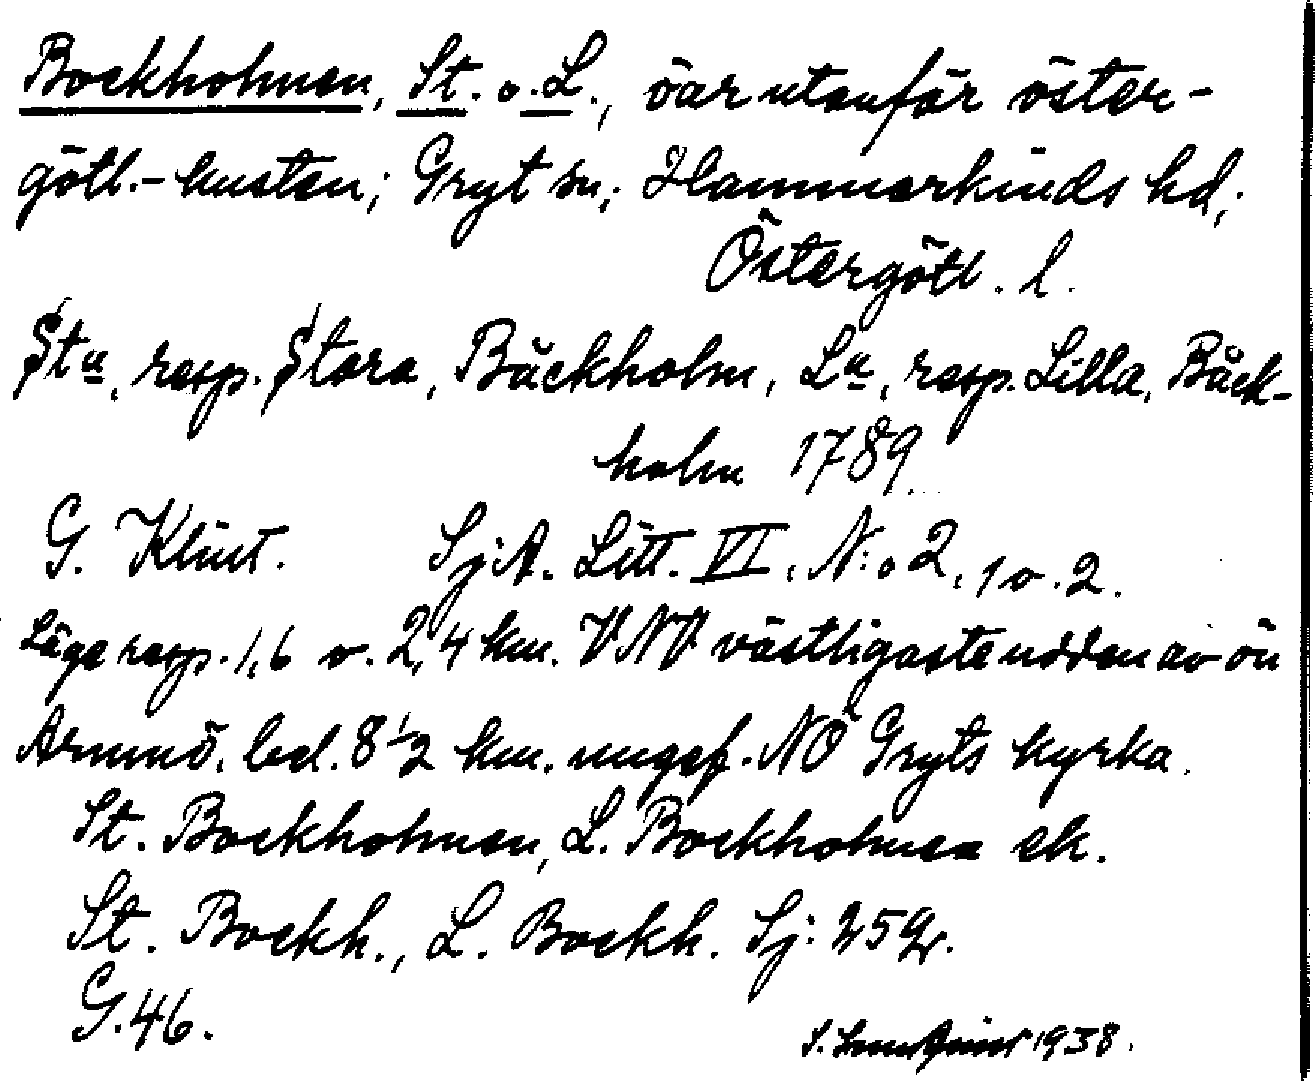 Bockholmen, St. o. L., öar utanför öster-
götl.-kusten; Gryt sn; Hammarkinds hd;
Östergötl. l.
Sta, resp. Stora, Båckholm, La, resp. Lilla, Båck-
holm 1789
G. Klint. Sj.A. Litt. VI, N:o 2, 1 o. 2.
Läge resp. 1,6 o. 2,4 km. VNV västligaste udden av ön
Armnö, bel. 8 1/2 km. ungef. NÖ Gryts kyrka.
St. Bockholmen, L. Bockholmen ek.
St. Bockh., L. Bockh. Sj: 259.
G. 46.
S. 1938.